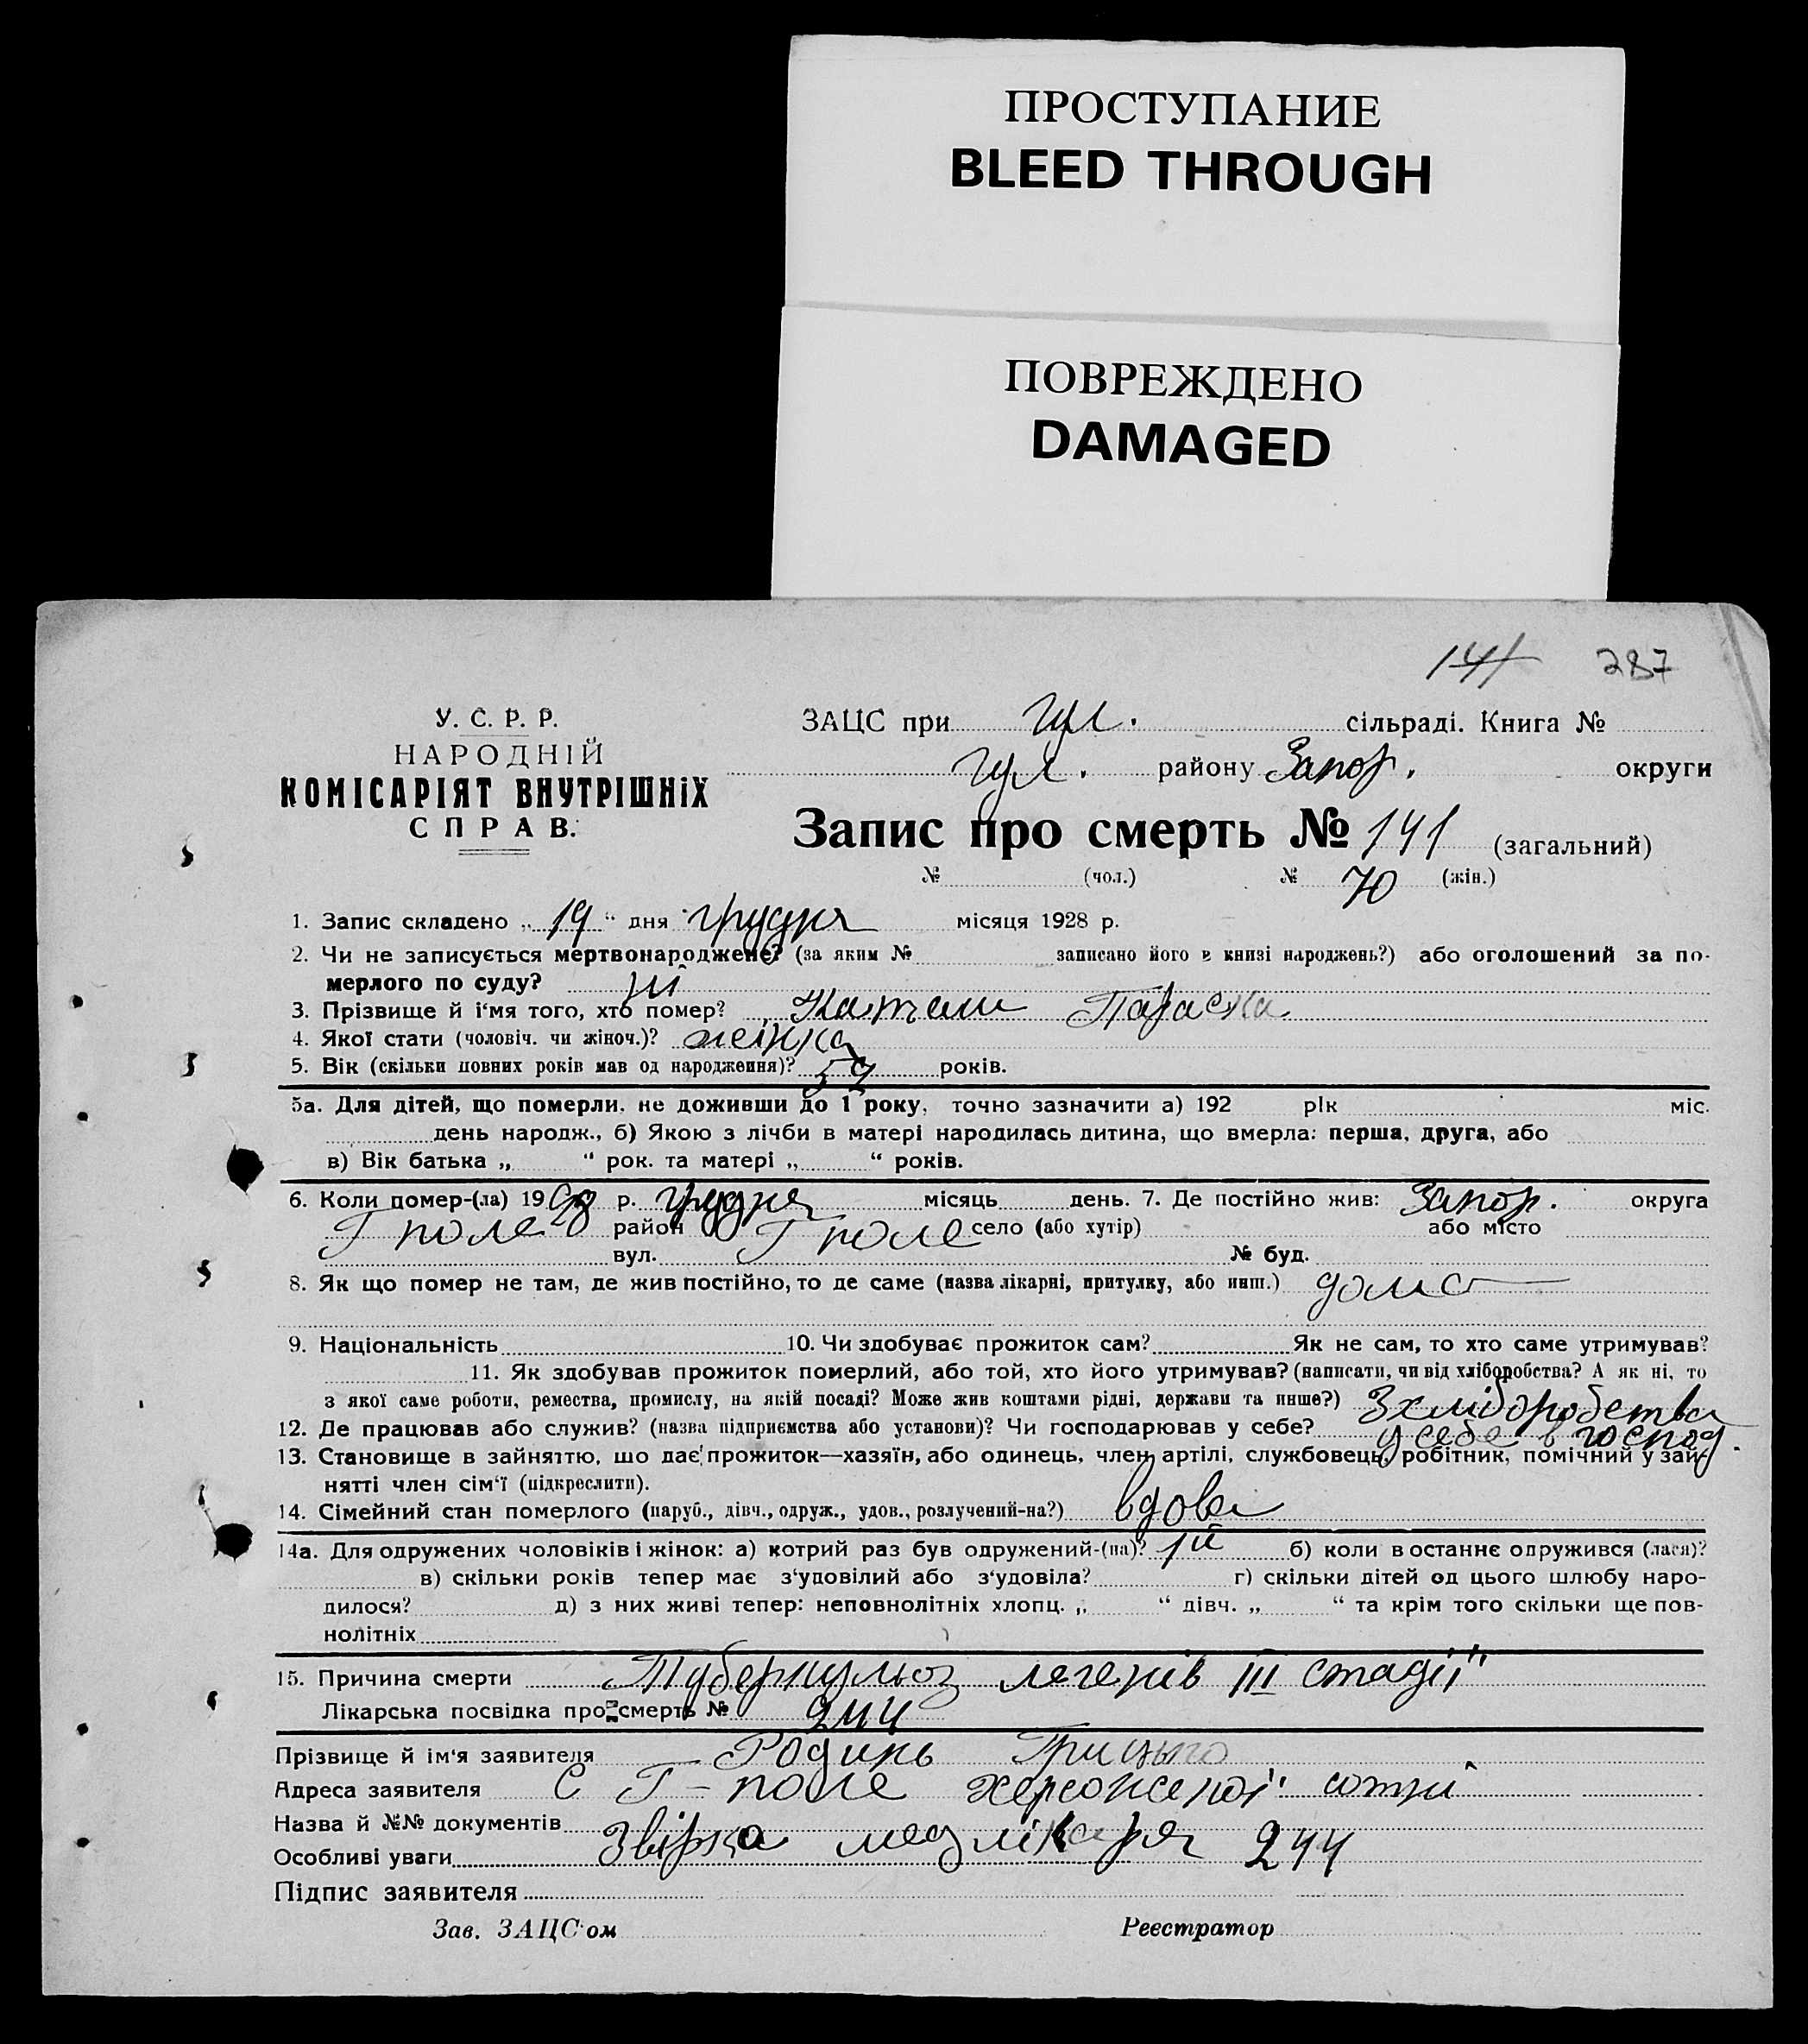 ПРОСТУПАНИЕ
BLEED THROUGH
ПОВРЕЖДЕНО
DAMAGED
141 287
У. С. Р. Р.
НАРОДНІЙ
КОМІСАРІЯТ ВНУТРІШНіХ
СПРАВ.
ЗАЦС при Гул. сільраді. Книга №
Гул. району Запор. округи
Запис про смерть № 141 (загальний)
№ (чол.) № 70 (жін.)
1. Запис складено „ 19 “ дня грудня місяця 1928 р.
2. Чи не записується мертвонароджене? (за яким № записано його в книзі народжень?) або оголошений за по-
мерлого по суду? ні
3. Прізвище й і‘мя того, хто помер? Параска
4. Якої стати (чоловіч. чи жіноч.)? жінка
5. Вік (скільки повних років мав од народження)? 59 років.
5а. Для дітей, що померли, не доживши до 1 року, точно зазначити а) 192 рік міс.
день народж., б) Якою з лічби в матері народилась дитина, що вмерла: перша, друга, або
в) Вік батька „ “ рок. та матері „ “ років.
6. Коли помер-(ла) 1928 р. грудня місяць день. 7. Де постійно жив: Запор. округа
Г поле район Г поле село (або хутір) або місто
вул. № буд.
8. Як що помер не там, де жив постійно, то де саме (назва лікарні, притулку, або инш.) дома
9. Національність 10. Чи здобуває прожиток сам? Як не сам, то хто саме утримував?
11. Як здобував прожиток померлий, або той, хто його утримував? (написати, чи від хліборобства? А як ні, то
з якої саме роботи, ремества, промислу, на якій посаді? Може жив коштами рідні, держави та инше?) З хліборобства
12. Де працював або служив? (назва підприємства або установи)? Чи господарював у себе? у себе в господ.
13. Становище в зайняттю, що дає прожиток—хазяїн, або одинець, член артілі, службовець, робітник, помічний у зай-
нятті член сім‘ї (підкреслити).
14. Сімейний стан померлого (паруб., дівч., одруж., удов., розлучений-на?) вдова
14а. Для одружених чоловіків і жінок: а) котрий раз був одружений-(на)? 1й б) коли в останнє одружився (лася)?
в) скільки років тепер має з‘удовілий або з‘удовіла? г) скільки дітей од цього шлюбу наро-
дилося? д) з них живі тепер: неповнолітніх хлопц. „ “ дівч. „ “ та крім того скільки ще пов-
нолітніх
15. Причина смерти Туберкульоз легенів III стадії
Лікарська посвідка про смерть № 244
Прізвище й ім‘я заявителя Родинь Грицько
Адреса заявителя С Г-поле Херсонської сотні
Назва й №№ документів
Особливі уваги медлікаря 244
Підпис заявителя
Зав. ЗАЦС‘ом Реєстратор